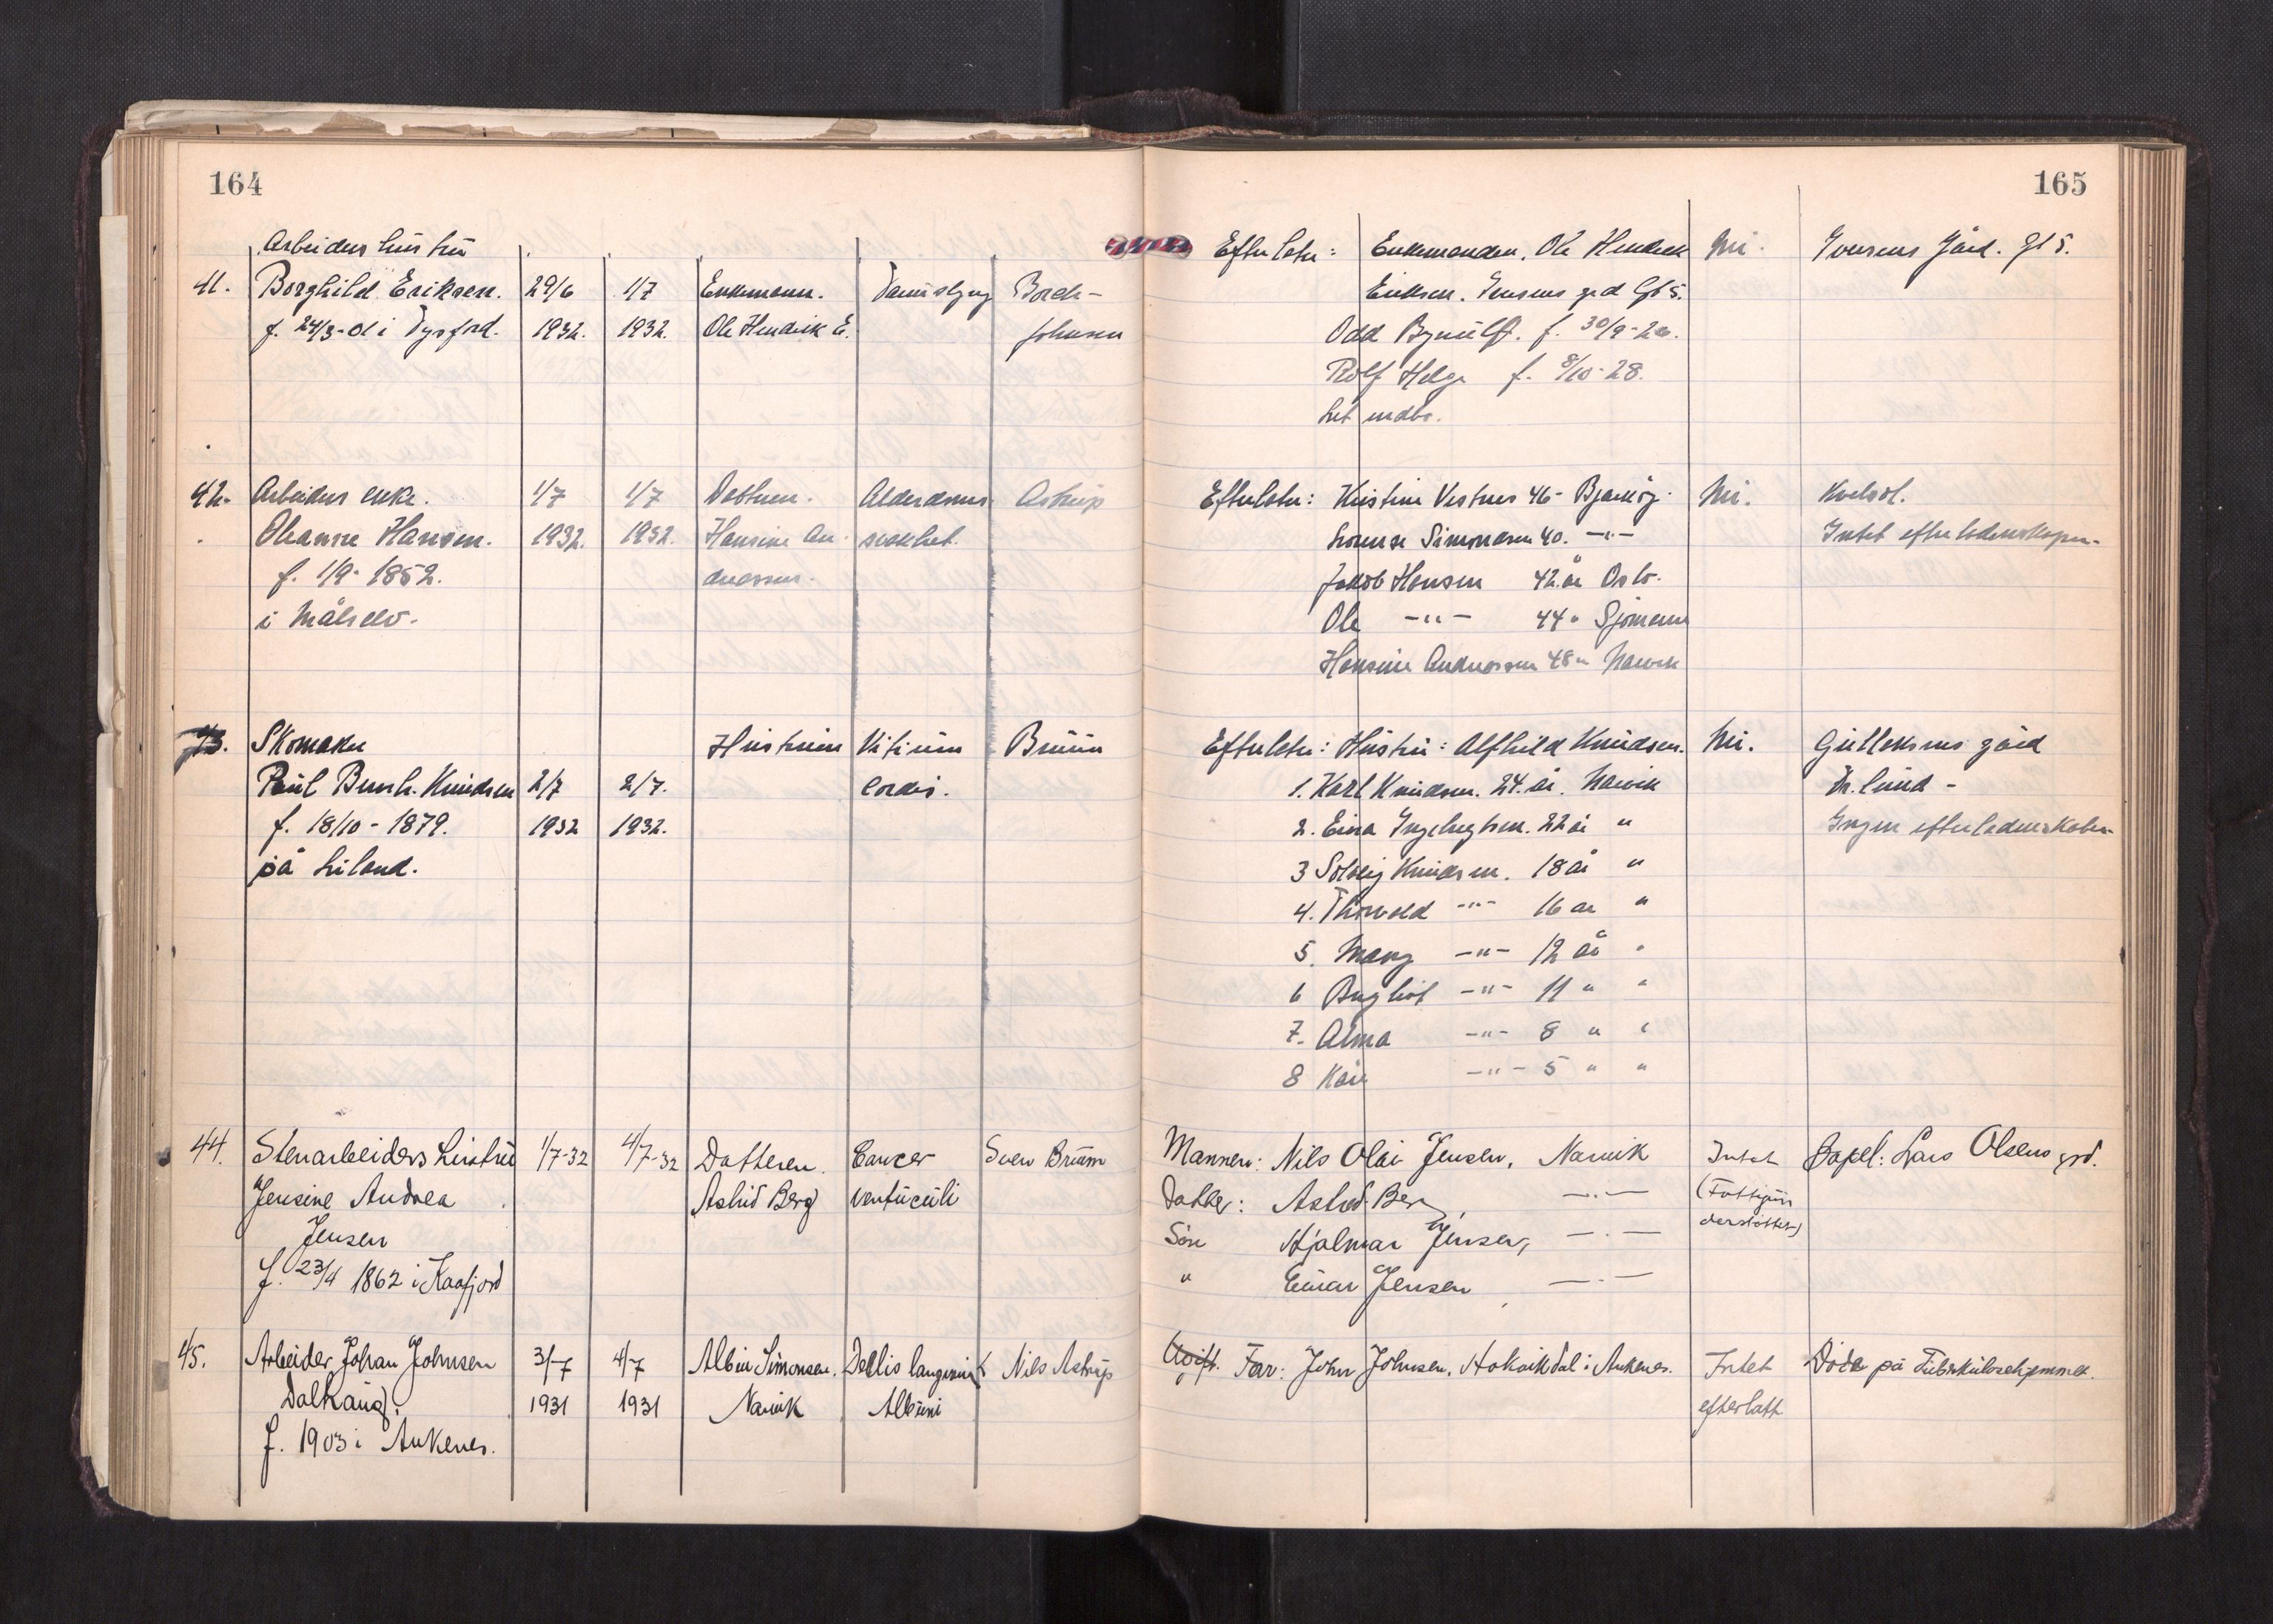 164
165
Arbeiders hustru
41. Borghild Eriksen. 29/6 1/7 Enkemann. Borch-
f. 24/3-01 i Tysfjord. 1932. 1932. Ole Hendrik E. Johnsen
Efterlater: Enkemanden, Ole Hendrik Nei. Iversens Gård. Gt 5.
Eriksen. Iversens grd Gt 5.
Odd Brynulf. f. 30/9-26.
Rolf Helge f. 8/10-28.
Litt indbo.
42. Arbeiders enke. 1/7 1/7 Datteren. Alderdoms- Astrup
Oleanne Hansen. 1932. 1932. Hansine An- svakhet.
f. 1/9-1852. dreassen.
i Målselv.
Efterlater: Kristine Vestnes 46- Bjerkvig. Nei.
Lovense Simonsen 40. -"-
Jakob Hansen 42 år Oslo. Intet
Ole -"- 44 " Sjömann
Hansine Andreassen 48 " Narvik
43. Skomaker Hustruen Vitium Bruun
Paul Bernh. Knudsen 2/7 2/7. cordis.
f. 18/10-1879. 1932 1932.
på Liland.
Efterlater: Hustru: Alfhild Knudsen. Nei. Gulleksens gård
1. Karl Knudsen. 24. år. Narvik
2. Eina Ingebregtsen. 22 år " Ingen
3 Solveig Knudsen. 18 år "
4. Thorvald -"- 16 år "
5. Mary -"- 12 år "
6 Bergliot -"- 11 " "
7. Alma -"- 8 " "
8 Kåre -"- 5 " "
44. Stenarbeiders hustru 1/7-32 4/7-32 Datteren. Cancer Sven Bruun
Jensine Andrea Astrid Berg ventriculi
Jensen
f. 23/4 1862 i Kaafjord
Mannen: Nils Olai Jensen, Narvik Intet Kapel: Lars Olsens grd.
Datter: Astrid Berg, -.- (Fattigun
derstöttet)
Sön Hjalmar Jensen, -.-
" Einar Jensen, -.-
45. Arbeider Johan Johnsen 3/7 4/7 Albin Simonsen. Nils Astrup
Dalhaug. 1931 1931 Narvik
f. 1903 i Ankenes.
Ugift. Far: John Johnsen, Hokvikdal i Ankenes. Intet Döde på Tuberkulosehjemmet.
efterlatt